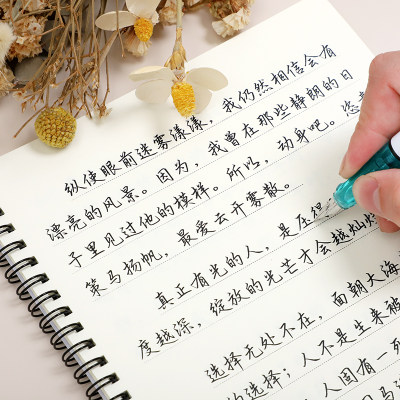 纵使眼前迷雾漾漾，我仍然相信会有
漂亮的风景。因为，我曾在那些静朗的日
子里见过他的模样。所以，动身吧。恣意
策马扬帆，最爱云开雾散。
真正有光的人，是压得
度越深，绽放的光芒才会越灿烂
选择无处不在，面朝大海
的选择；人不是生来被
人固有一死